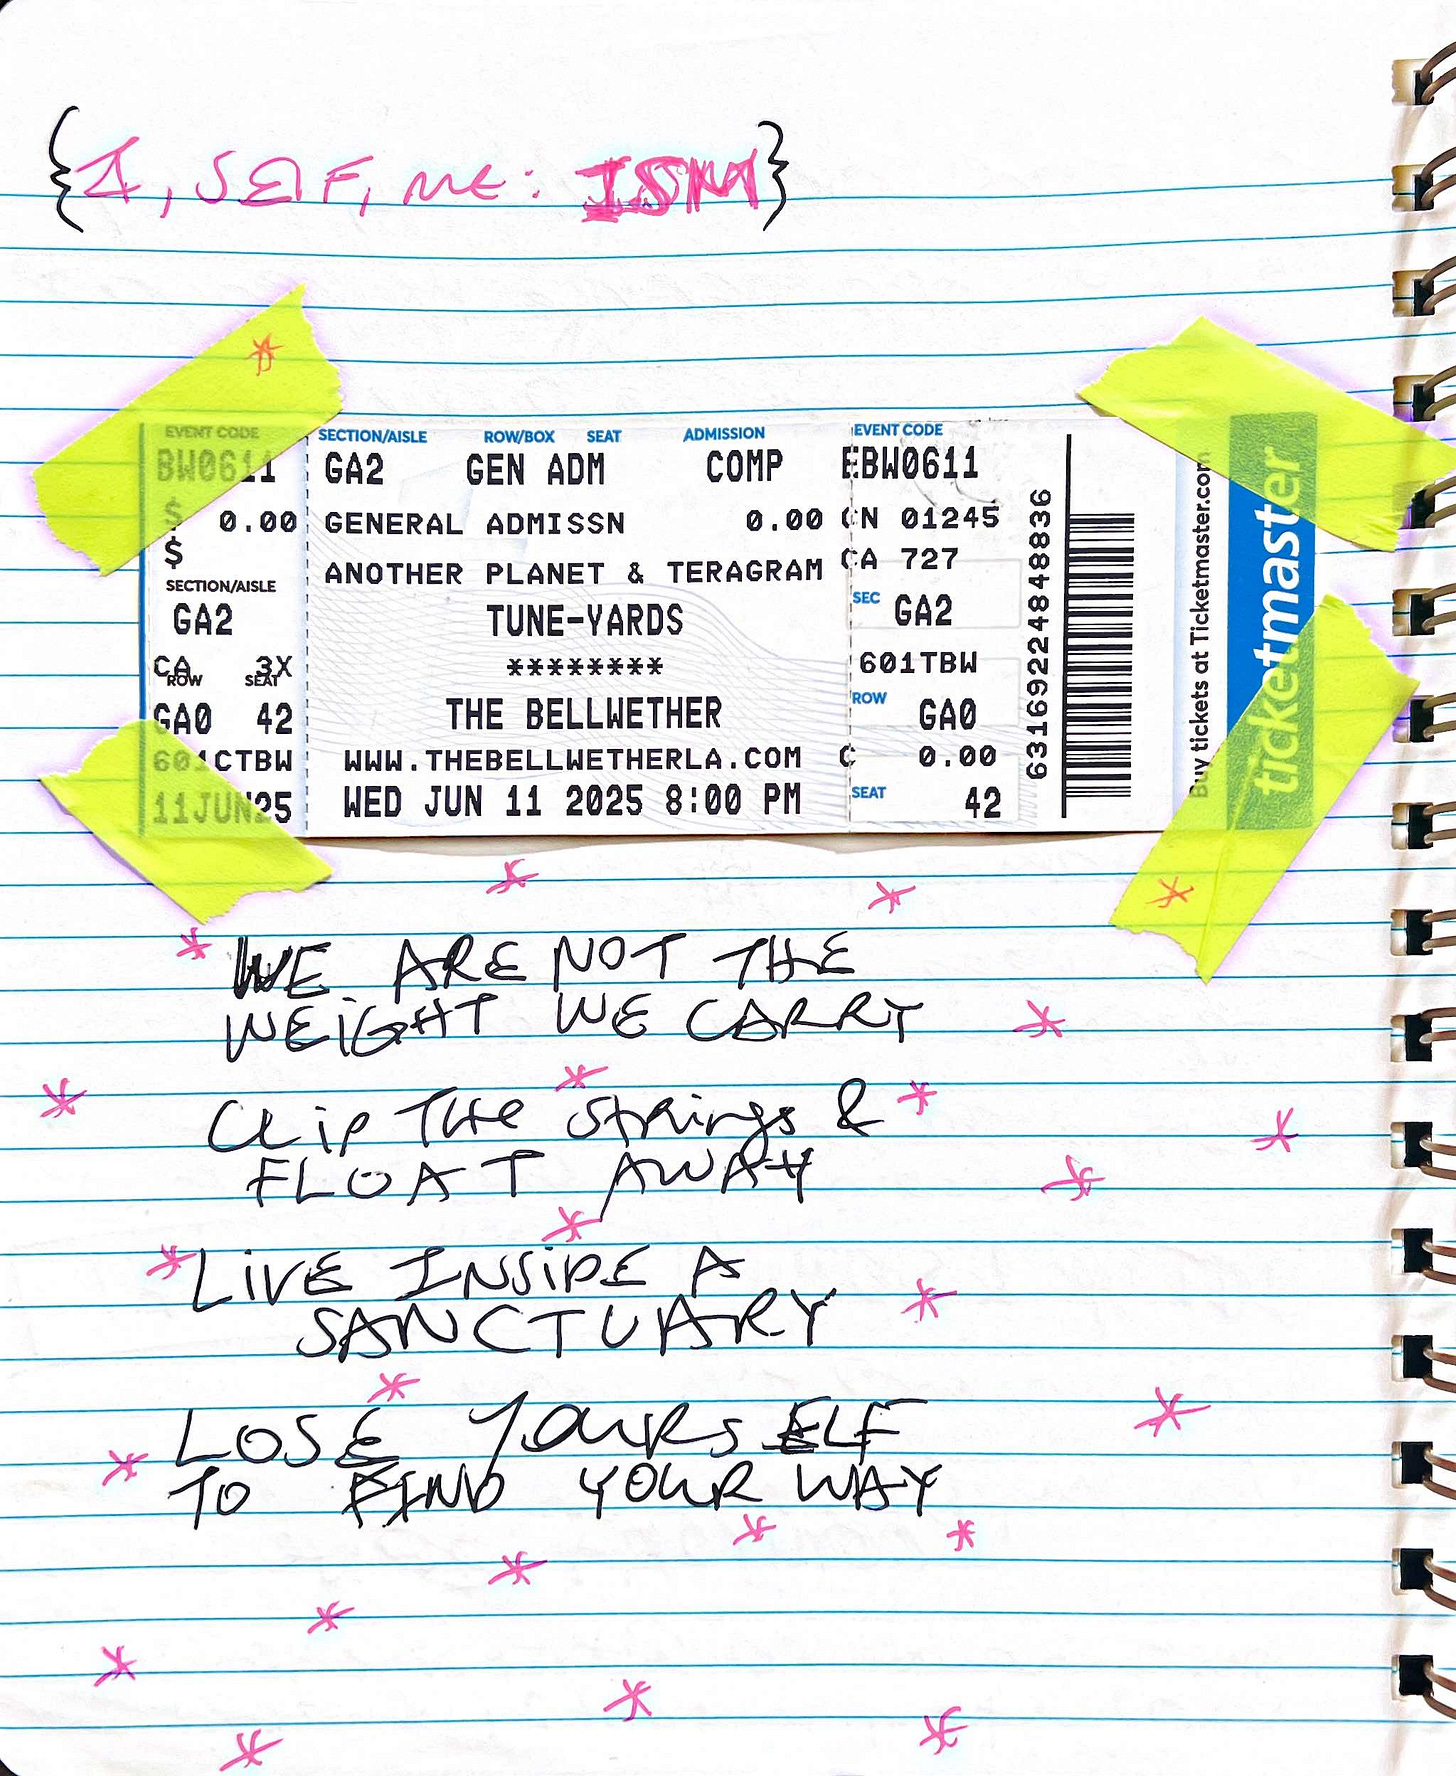 {I, SELF, ME: ISM}
EVENT CODE
BW0611
$ 0.00
$
SECTION/AISLE
GA2
CA 3X
ROW SEAT
GA0 42
601CTBW
11JUN25
SECTION/AISLE ROW/BOX SEAT ADMISSION
GA2 GEN ADM COMP
GENERAL ADMISSN 0.00
ANOTHER PLANET & TERAGRAM
TUNE-YARDS
********
THE BELLWETHER
WWW.THEBELLWETHERLA.COM
WED JUN 11 2025 8:00 PM
EVENT CODE
EBW0611
CN 01245
CA 727
SEC GA2
601TBW
ROW
GA0
C 0.00
SEAT
42
63169224848836
Buy tickets at Ticketmaster.com
ticketmaster
WE ARE NOT THE
WEIGHT WE CARRY
CLIP THE STRINGS &
FLOAT AWAY
LIVE INSIDE A
SANCTUARY
LOSE YOURSELF
TO FIND YOUR WAY